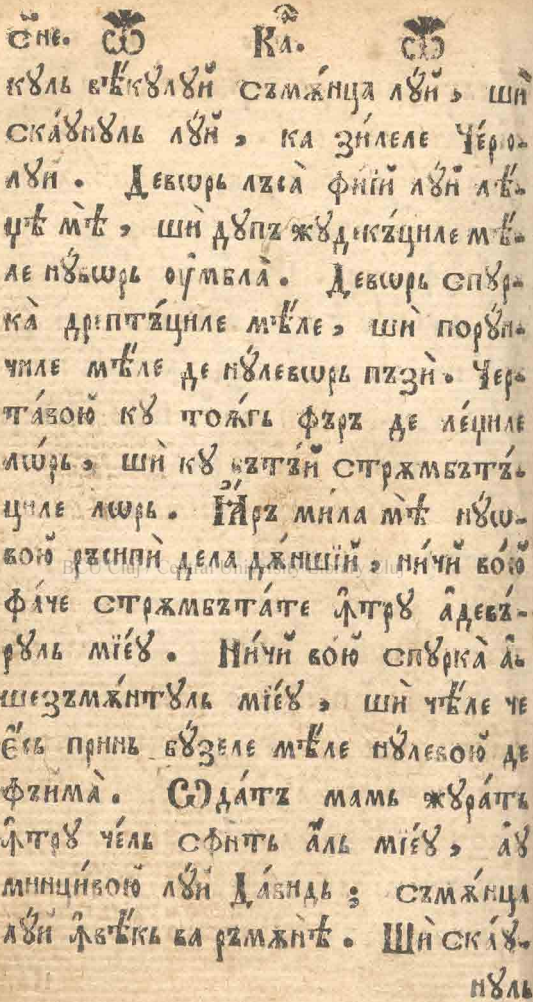 с҃не. Ѿ Ка҃. Ѿ
кꙋль вѣ́кꙋлꙋй съмѫ́нца лꙋ́й, шѝ
ска́ꙋнꙋль лꙋ́й, ка зи́леле Че́рю-
лꙋй. Девѡрь лъса̀ фі́їй лꙋ́й лѣ́-
ꙋѣ мѣ̀, шѝ дꙋпъ жꙋдекъ́циле мѣ́-
ле нꙋ́вѡрь оу҆мбла̀. Девѡрь спꙋр-
ка̀ дрептъ́циле мѣ́ле, шѝ порꙋ́н-
чиле мѣ́ле де нꙋ́левѡрь пъзѝ. Чер-
та́вою̆ кꙋ тоѧ́гь фъръ де ле́циле
лѡ́рь, шѝ кꙋ бътъ́й стрѫмбътъ́-
циле лѡрь. Ꙗ҆́ръ ми́ла мѣ̀ нꙋ́ѡ-
вою̆ ръсипѝ дела дѫ́ншїй, ни́чй во́ю̆
фа́че стрѫмбъта́те ꙟ҆трꙋ а҆девъ́-
рꙋль мїе́ꙋ. Ни́чй во́ю̆ спꙋрка̀ а҆-
шезъмѫ́нтꙋль мїе́ꙋ, шѝ чѣ́ле че
є҆́сь принь бꙋ́зеле мѣ́ле нꙋ́левою̆ де
фъима̀. Ѡ҆да́тъ мамь жꙋра́ть
ꙟ҆трꙋ че́ль сфѝнть а҆́ль мїе́ꙋ, а҆ꙋ
минци́вою̆ лꙋ́й Да́видь; съмѫ́нца
лꙋ́й ꙟ҆вѣ́кь ва ръмѫ́нѣ. Шѝ ска́ꙋ-
нꙋль
BCU Cluj / Central University Library Cluj